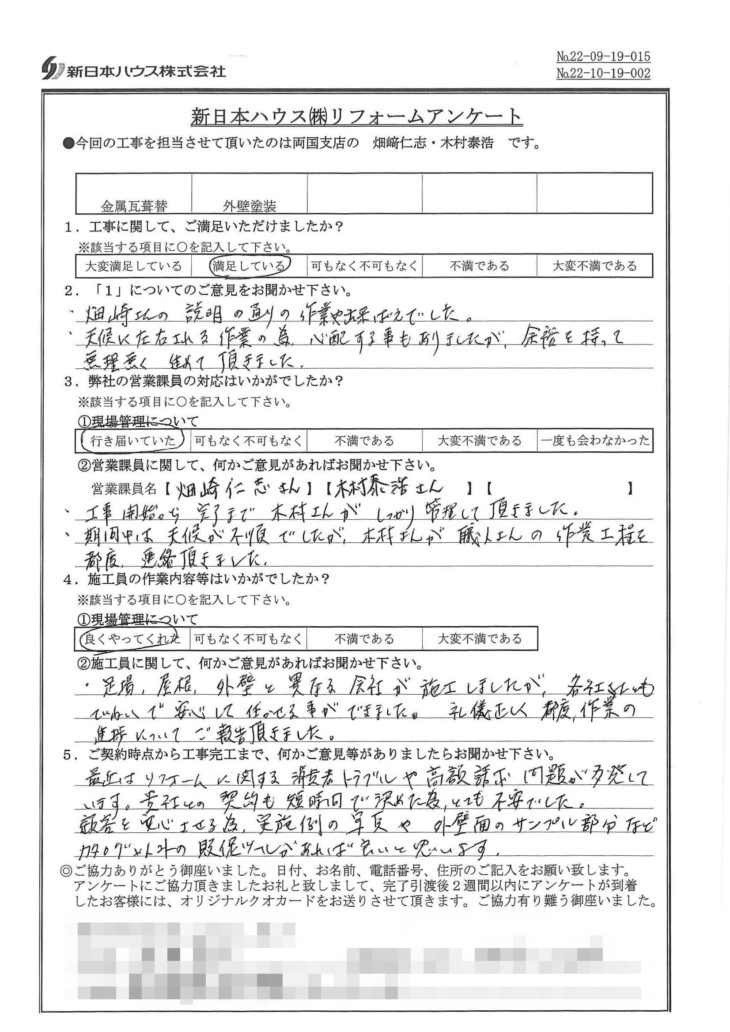 新日本ハウス株式会社
№22-09-19-015
№22-10-19-002
新日本ハウス㈱リフォームアンケート
●今回の工事を担当させて頂いたのは両国支店の 畑﨑仁志・木村泰浩 です。
金属瓦葺替 外壁塗装
1．工事に関して、ご満足いただけましたか？
※該当する項目に○を記入して下さい。
大変満足している 満足している 可もなく不可もなく 不満である 大変不満である
2．「1」についてのご意見をお聞かせ下さい。
・畑﨑さんの説明の通りの作業や出来ばえでした。
・天候に左右される作業の為、心配する事もありましたが、余裕を持って
無理無く進めて頂きました。
3．弊社の営業課員の対応はいかがでしたか？
※該当する項目に○を記入して下さい。
①現場管理について
行き届いていた 可もなく不可もなく 不満である 大変不満である 一度も会わなかった
②営業課員に関して、何かご意見があればお聞かせ下さい。
営業課員名【畑﨑仁志さん】【木村泰浩さん】【 】
・工事開始から完了まで木村さんがしっかり管理して頂きました。
・期間中は天候が不順でしたが、木村さんが職人さんの作業工程を
都度、連絡頂きました。
4．施工員の作業内容等はいかがでしたか？
※該当する項目に○を記入して下さい。
①現場管理について
良くやってくれた 可もなく不可もなく 不満である 大変不満である
②施工員に関して、何かご意見があればお聞かせ下さい。
・足場、屋根、外壁と異なる会社が施工しましたが、各社さんとも
ていねいで安心して任せる事ができました。礼儀正しく都度、作業の
進捗についてご報告頂きました。
5．ご契約時点から工事完工まで、何かご意見等がありましたらお聞かせ下さい。
最近はリフォームに関する消費者トラブルや高額請求問題が多発して
います。貴社との契約も短時間で決めた為、とても不安でした。
顧客を安心させる為、実施例の写真や外壁面のサンプル部分など
カタログ以外の販促ツールがあれば良いと思います。
◎ご協力ありがとう御座いました。日付、お名前、電話番号、住所のご記入をお願い致します。
アンケートにご協力頂きましたお礼と致しまして、完了引渡後2週間以内にアンケートが到着
したお客様には、オリジナルクオカードをお送りさせて頂きます。ご協力有り難う御座いました。